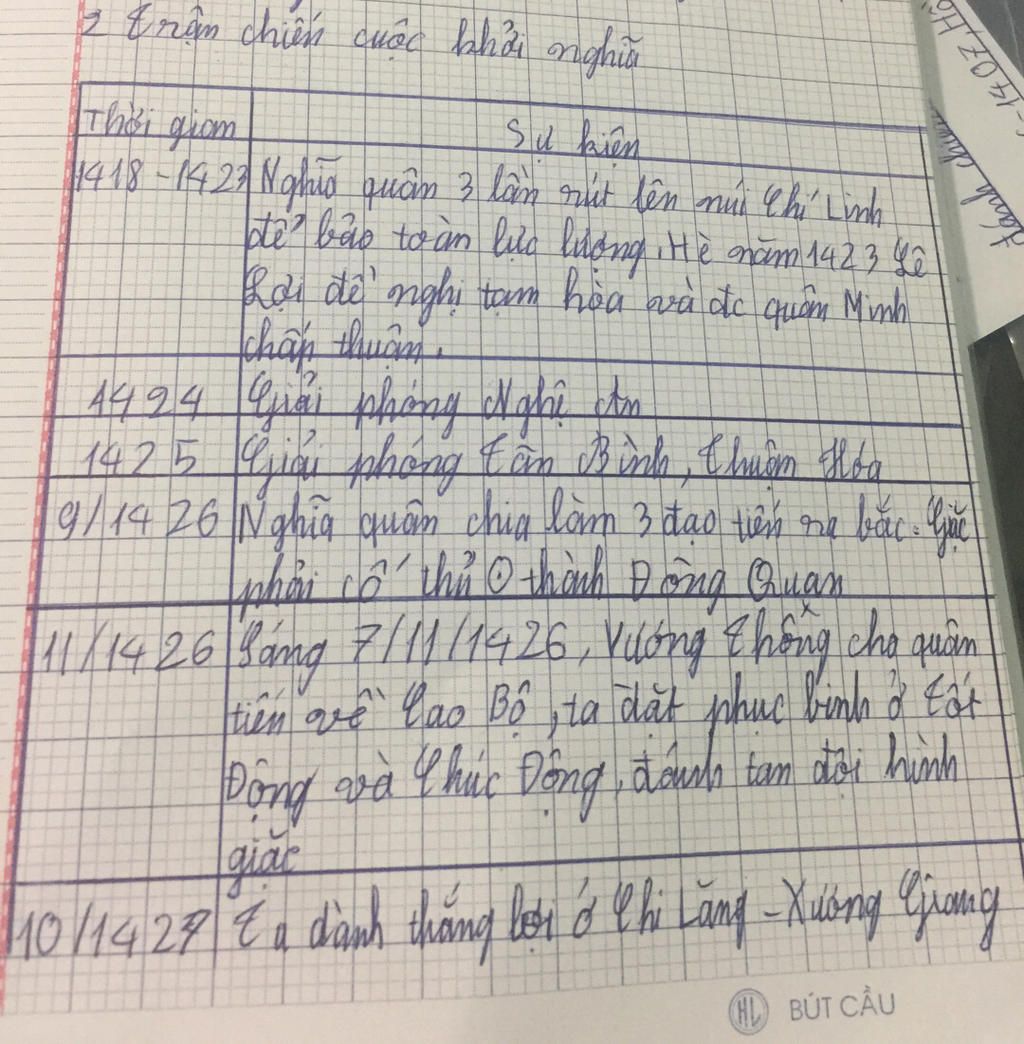 2 trận chiến cuộc khởi nghĩa
Thời gian
Sự kiện
1418 - 1423
Nghĩa quân 3 lần rút lên núi Chí Linh
để bảo toàn lực lượng. Hè năm 1423 Lê
Lợi đề nghị tạm hòa và đc quân Minh
chấp thuận.
1424
Giải phóng Nghệ An
1425
Giải phóng Tân Bình, Thuận Hóa
9/1426
Nghĩa quân chia làm 3 đạo tiến ra bắc. Giặc
phải cố thủ ở thành Đông Quan
11/1426
Sáng 7/11/1426, Vương Thông cho quân
tiến về Cao Bộ, ta đặt phục binh ở Tốt
Động và Chúc Động, đánh tan đội hình
giặc
10/1427
Ta dành thắng lợi ở Chi Lăng - Xương Giang
HL BÚT CẦU